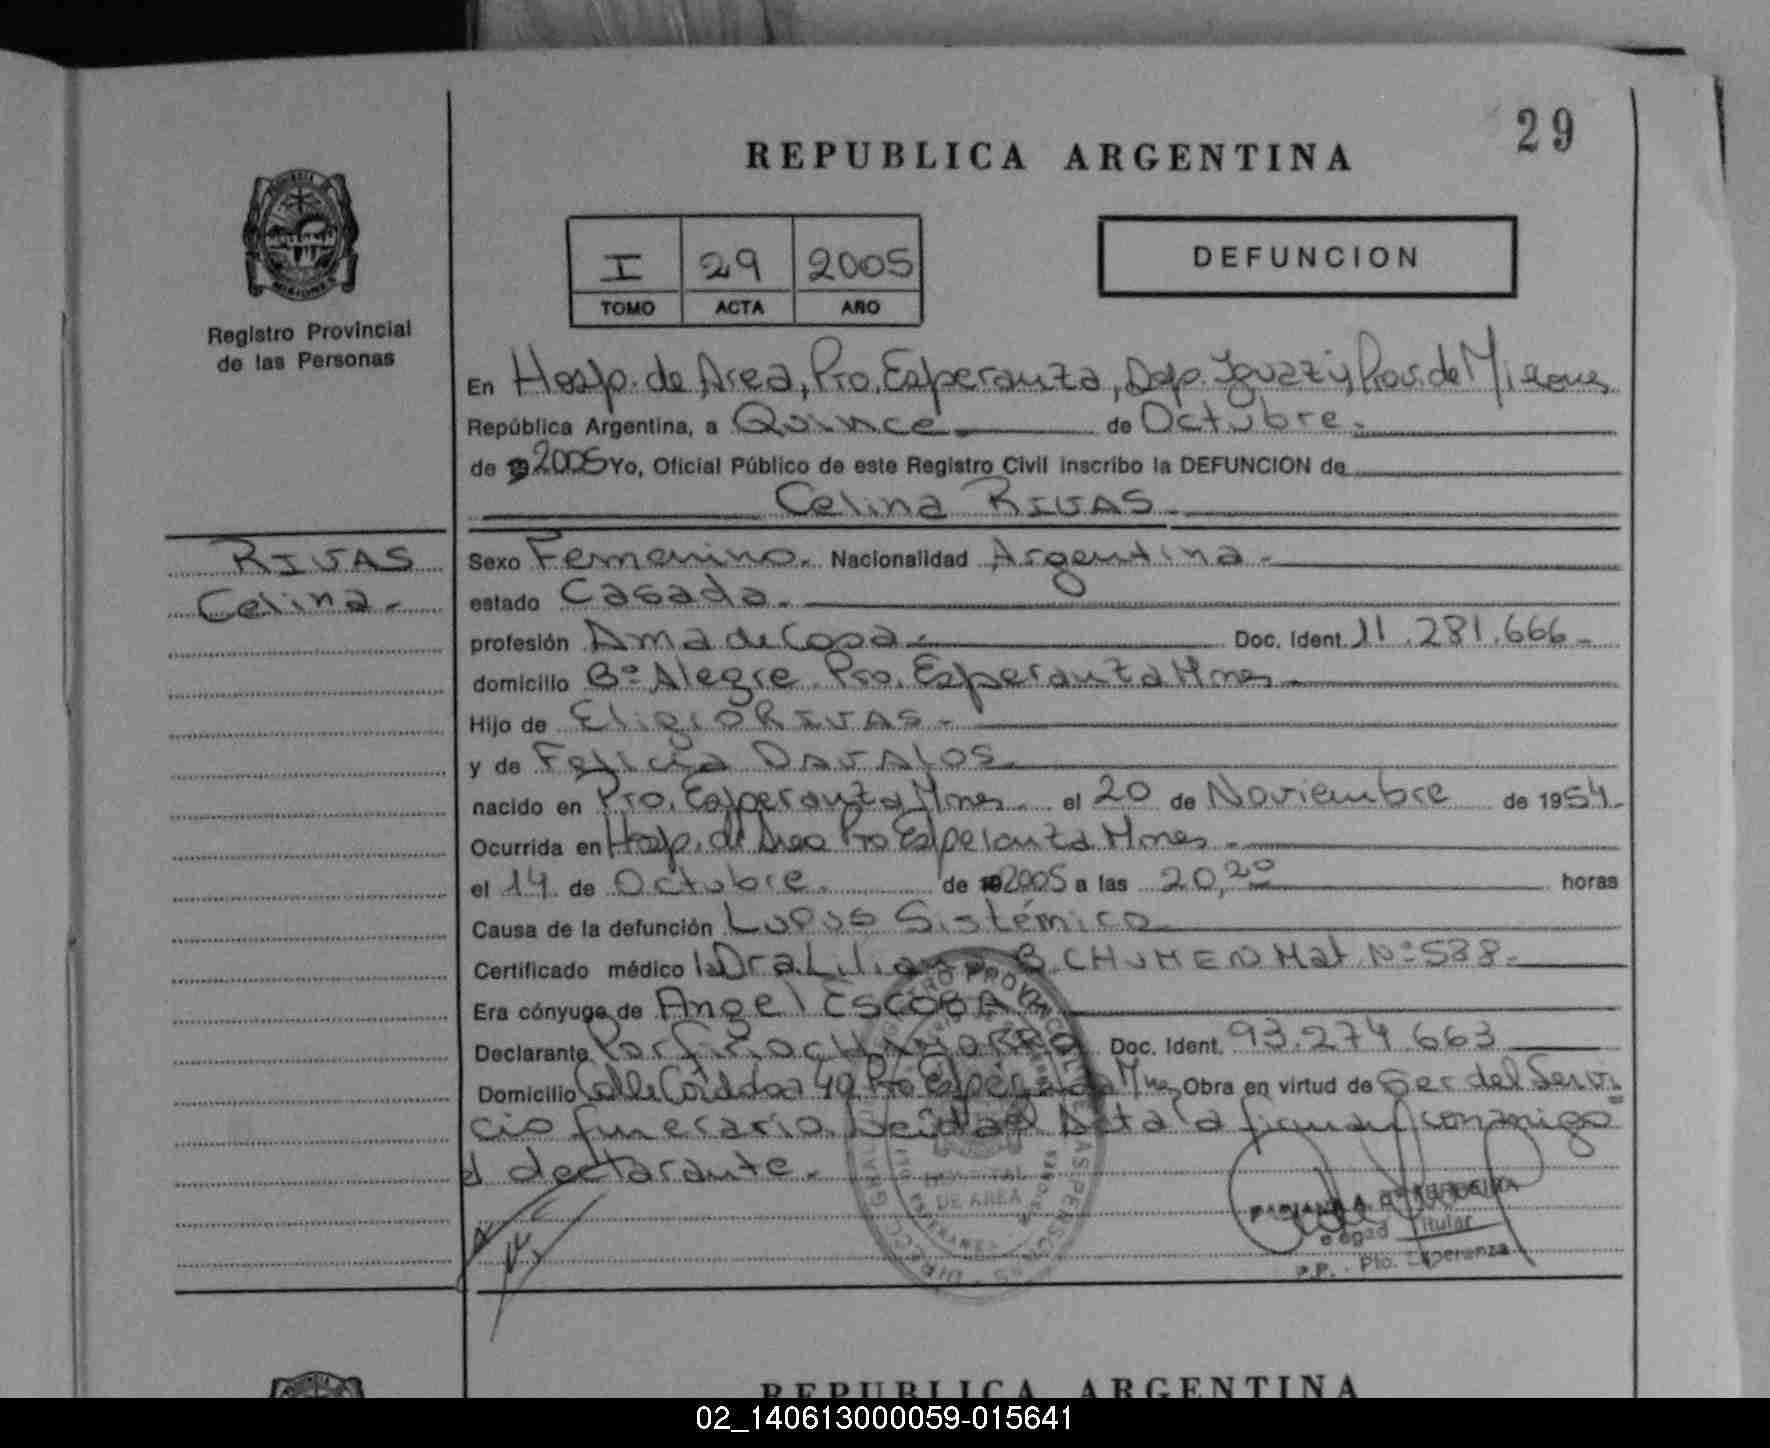 29
REPUBLICA ARGENTINA
I 29 2005
TOMO ACTA AÑO
DEFUNCION
Registro Provincial
de las Personas
En Hosp. de Area, Pto. Esperanza, Dep. Iguazú, Prov. de Misiones
República Argentina, a Quince de Octubre.
de 2005 Yo, Oficial Público de este Registro Civil inscribo la DEFUNCION de
Celina RIVAS
RIVAS
Celina.-
Sexo Femenino. Nacionalidad Argentina.-
estado Casada.
profesión Ama de Casa.- Doc. Ident. 11.281.666.-
domicilio Bº Alegre Pto. Esperanza Mnes.
Hijo de Eligio RIVAS.-
y de Felicia DAVALOS.
nacido en Pto. Esperanza Mnes. el 20 de Noviembre de 1954.
Ocurrida en Hosp. de Area Pto Esperanza Mnes.-
el 14 de Octubre. de 2005 a las 20,20 horas
Causa de la defunción Lupus Sistémico
Certificado médico la Dra. Liliana B. CHUMEN Mat Nº 588.-
Era cónyuge de Angel ESCOBAR
Declarante Porfirio CHAMORRO Doc. Ident. 93.274.663
Domicilio Calle Córdoba 49 Pto Esperanza Mnes Obra en virtud de Ser del Servi
cio funerario. Leída el Acta la firman conmigo
el declarante.-
HOSPITAL
DE AREA
Titular
Pto. Esperanza
REPUBLICA ARGENTINA
02_140613000059-015641